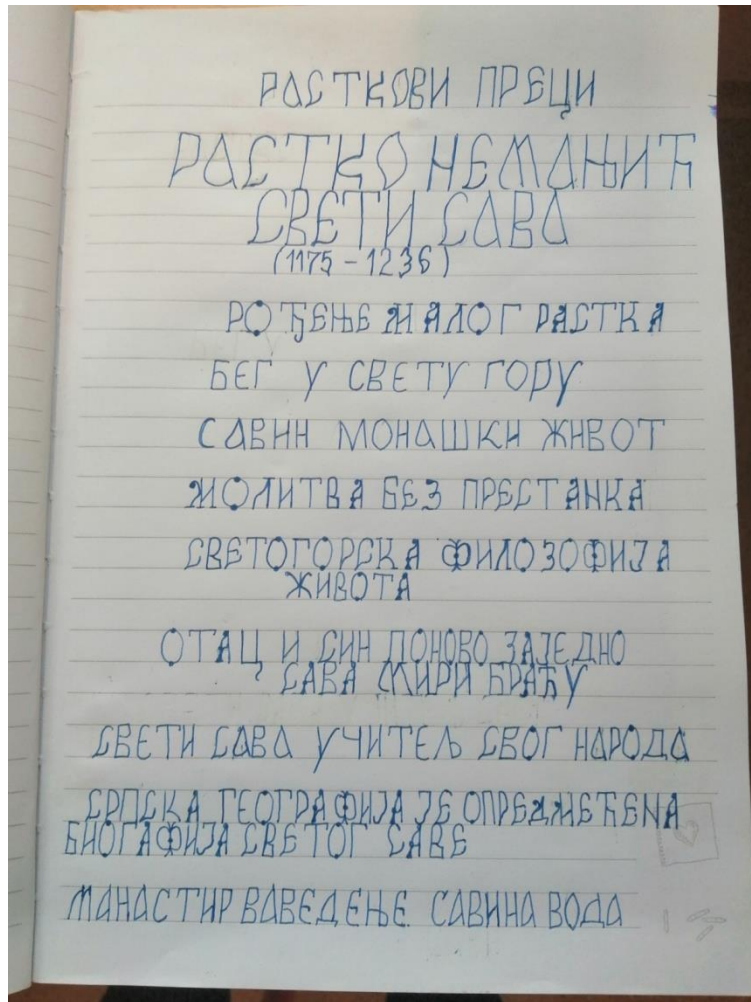 РАСТКОВИ ПРЕЦИ
РАСТКО НЕМАЊИЋ
СВЕТИ САВА
(1175 - 1236)
РОЂЕЊЕ МАЛОГ РАСТКА
БЕГ У СВЕТУ ГОРУ
САВИН МОНАШКИ ЖИВОТ
МОЛИТВА БЕЗ ПРЕСТАНКА
СВЕТОГОРСКА ФИЛОЗОФИЈА
ЖИВОТА
ОТАЦ И СИН ПОНОВО ЗАЈЕДНО
САВА МИРИ БРАЋУ
СВЕТИ САВА УЧИТЕЉ СВОГ НАРОДА
СРПСКА ГЕОГРАФИЈА ЈЕ ОПРЕДМЕЋЕНА
БИОГАФИЈА СВЕТОГ САВЕ
МАНАСТИР ВАВЕДЕЊЕ САВИНА ВОДА